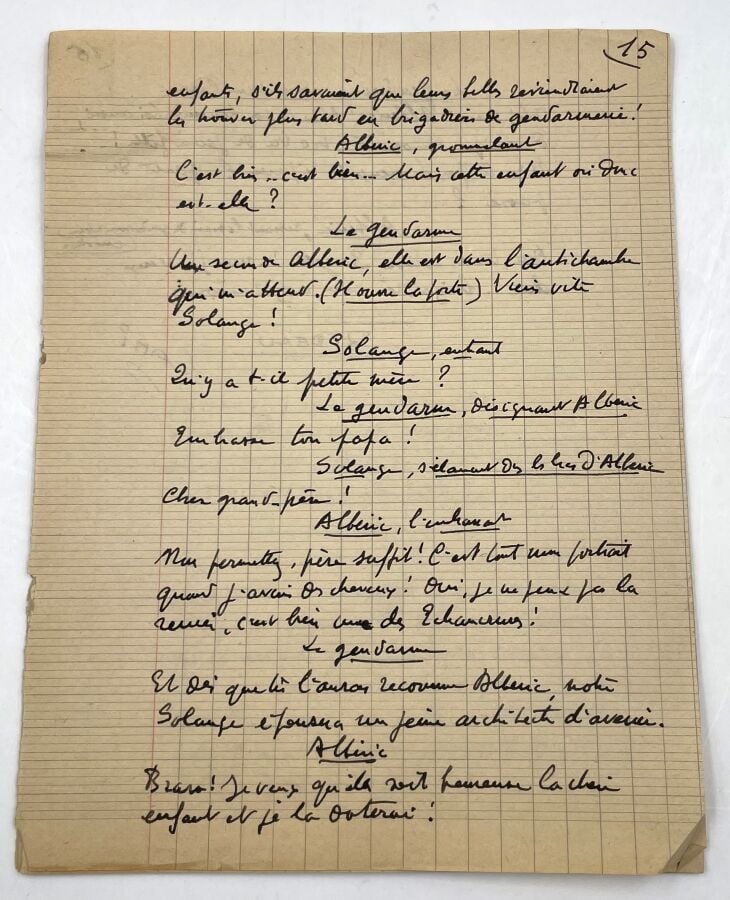 15
enfants, s'ils savaient que leurs belles reviendraient
les trouver plus tard en brigadiers de gendarmerie!
Albéric, grommelant
C'est bien... c'est bien... Mais cette enfant où donc
est-elle ?
Le gendarme
Une seconde Albéric, elle est dans l'antichambre
qui m'attend. (Il ouvre la porte) Viens vite
Solange !
Solange, entrant
Qu'y a t-il petite mère ?
Le gendarme, désignant Albéric
Embrasse ton papa !
Solange, s'élançant ds les bras d'Albéric
Cher grand-père !
Albéric, l'embrassant
Non permettez, père suffit ! C'est tout mon portrait
quand j'avais des cheveux ! Oui, je ne peux pas la
renier, c'est bien une des Echancrures !
Le gendarme
Et dès que tu l'auras reconnue Albéric, notre
Solange épousera un jeune architecte d'avenir.
Albéric
Bravo ! Je veux qu'elle soit heureuse la chère
enfant et je la doterai !